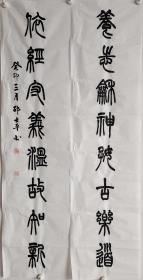 養志龢神古樂道
依經義溫故知新
癸卯三月